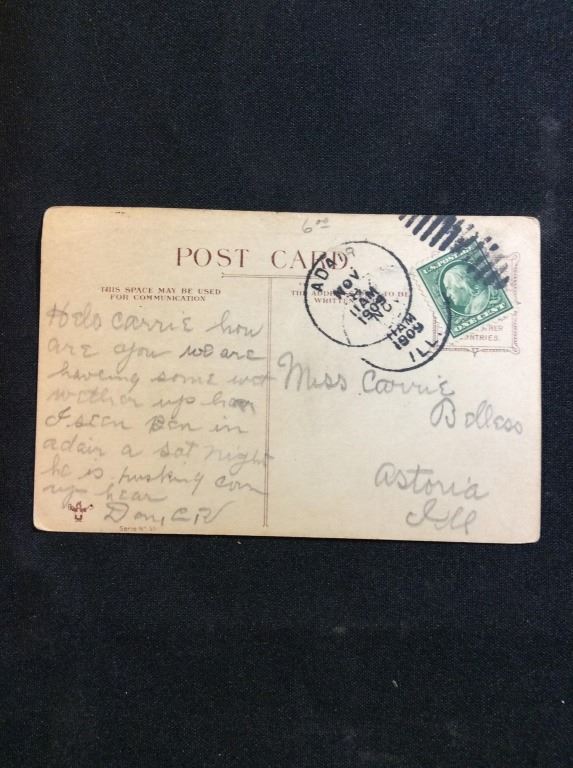 6 00
POST CARD.
THIS SPACE MAY BE USED
FOR COMMUNICATION
THE ADDRESS TO BE
WRITTEN
ADAIR
NOV
11 AM
1909
NOV
11 AM
1909
ILL.
U.S. POSTAGE
ONE CENT
NTRIES.
Helo carrie how
are you we are
haveing some wet
wether up hear
I seen Ben in
adair a sat night
he is husking corn
up hear
Miss Carrie
Belless
Astoria
Ill
Serie No.